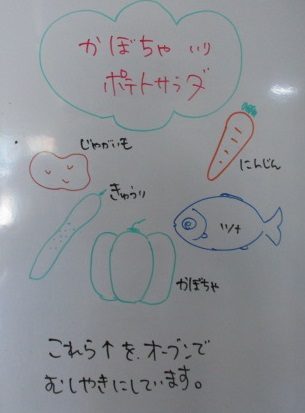 かぼちゃ入り
ポテトサラダ
じゃがいも
にんじん
きゅうり
ツナ
かぼちゃ
これら↑を、オーブンで
むしやきにしています。